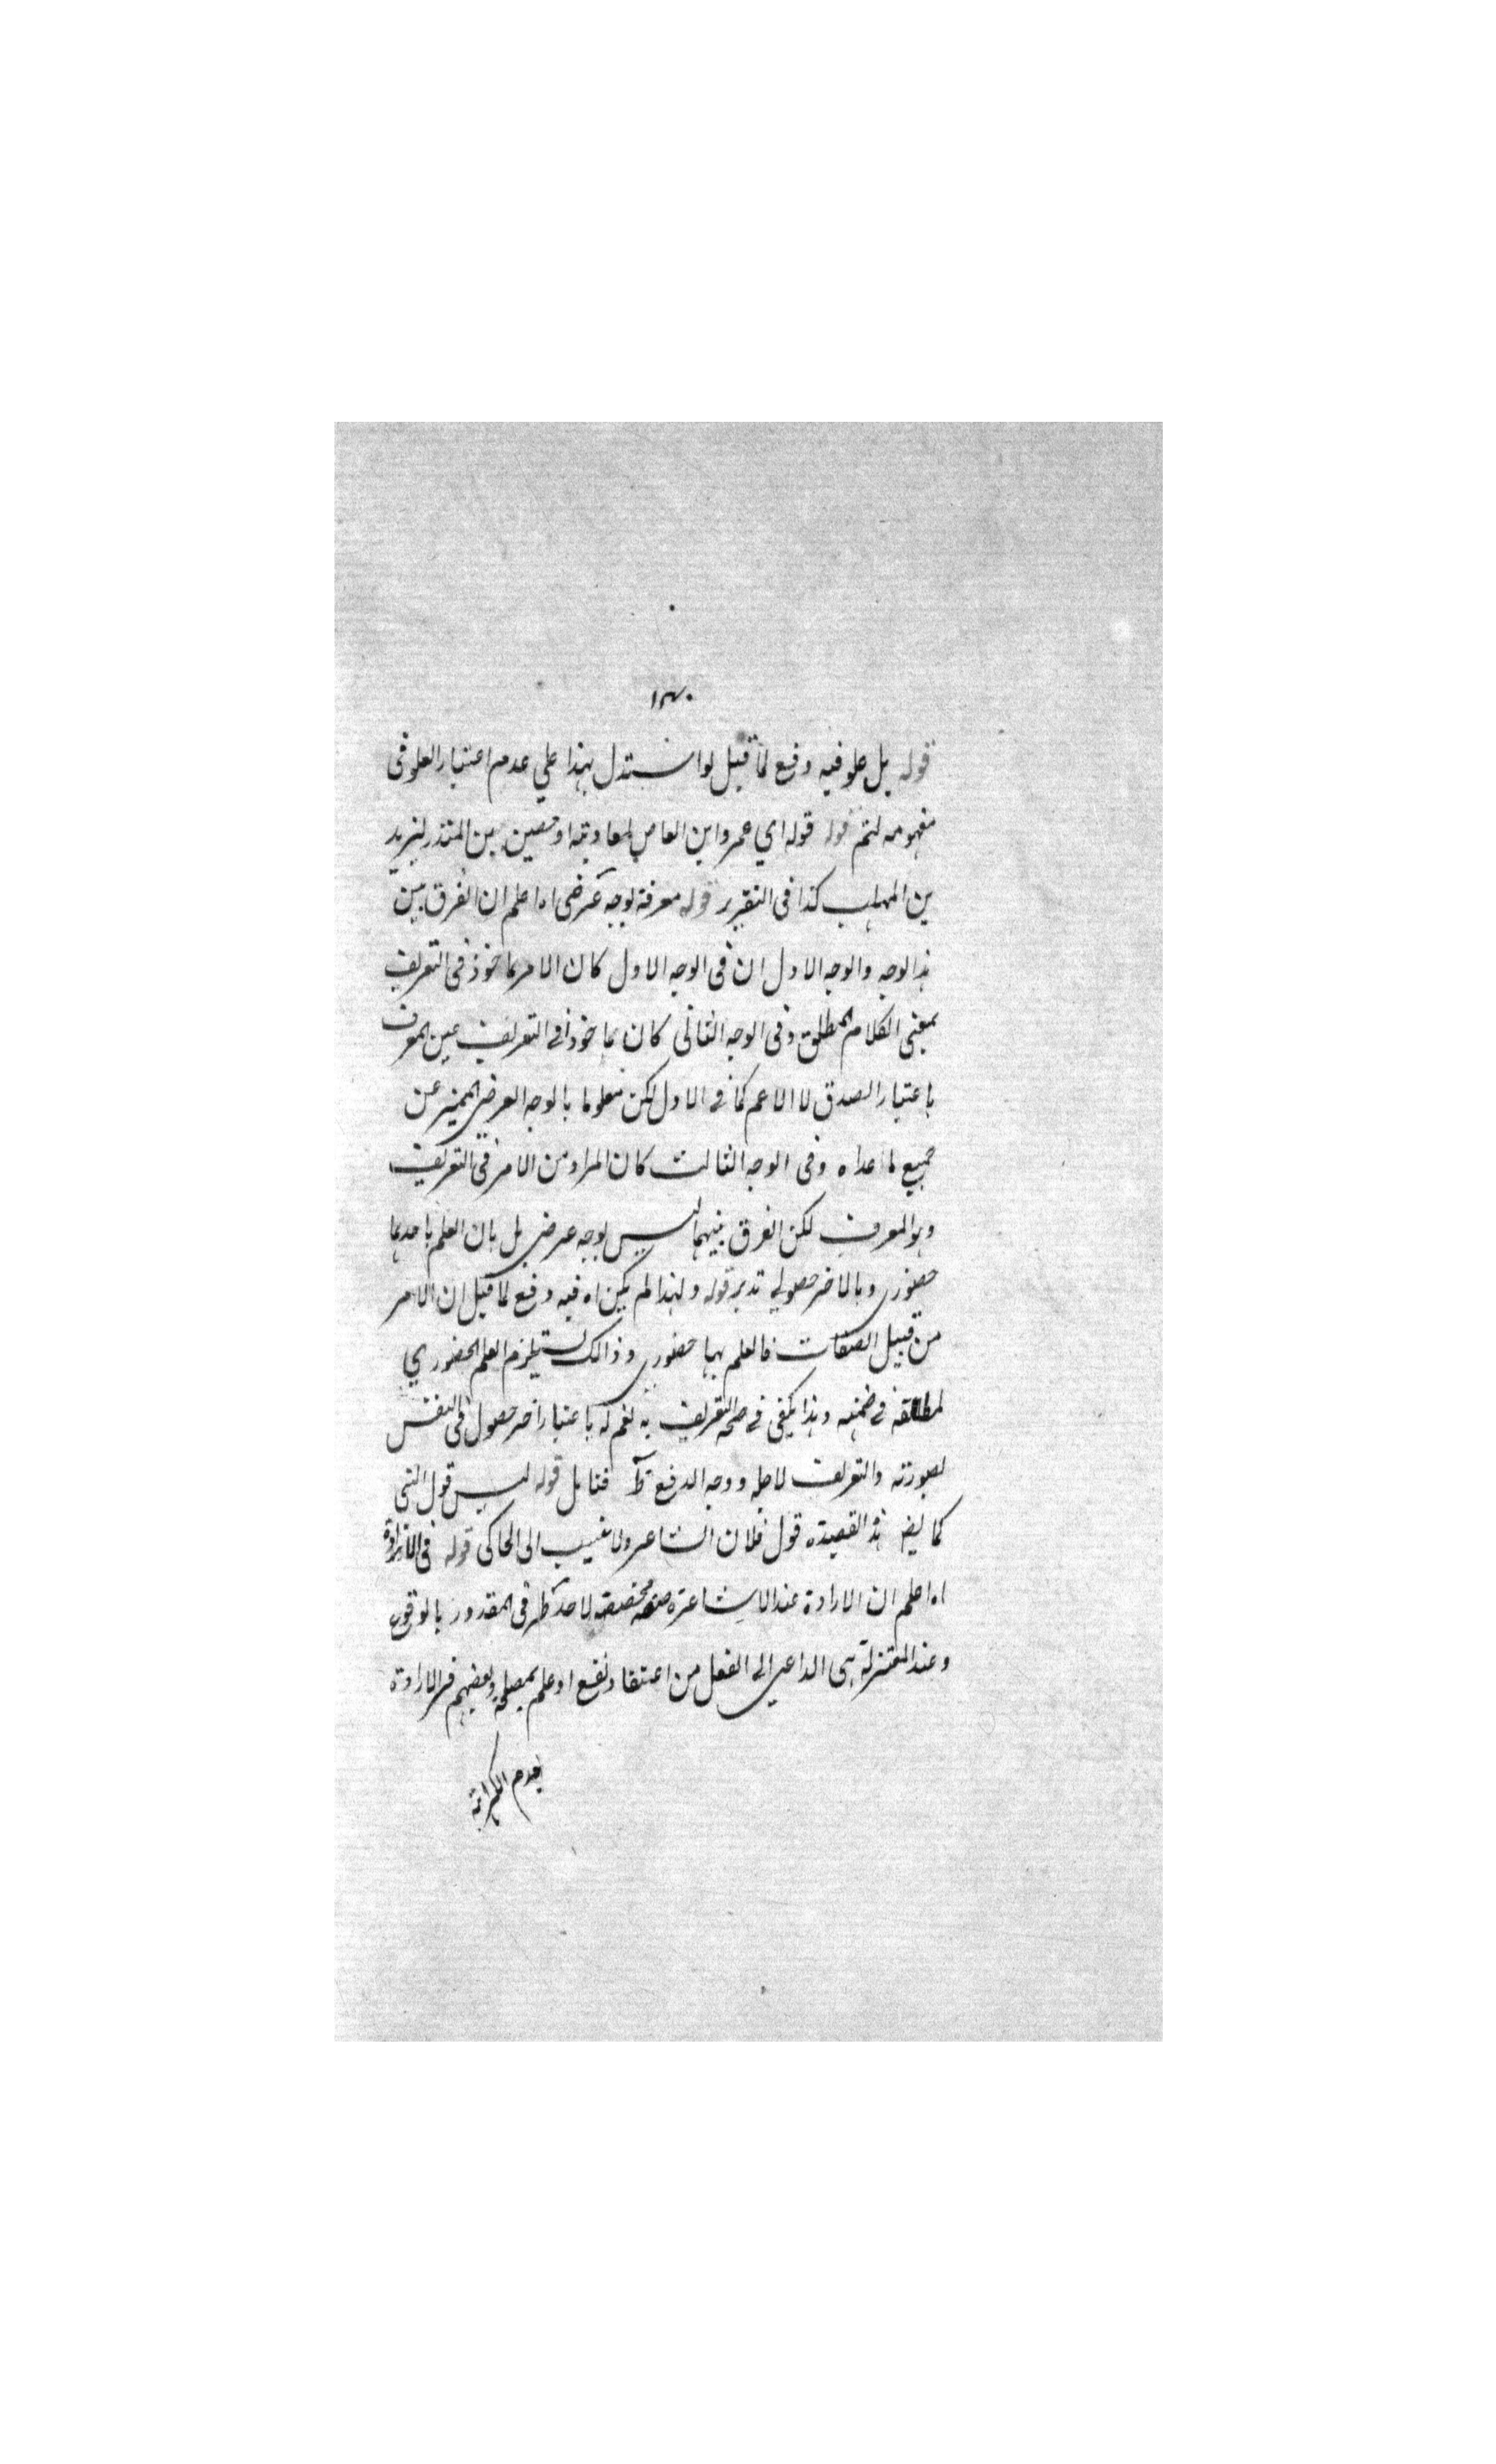 ١٣٠
قوله بل علو فيه دفع لما قيل لو استدل بهذا علي عدم اعتبار العلو في
مفهومه لتم قوله قوله اي عمرو ابن العاص لمعاوية او حصين بن المنذر ليزيد
بن المهلب كذا في التقرير قوله معرفة بوجه عرضي اه اعلم ان الفرق بين
هذا الوجه والوجه الاول ان في الوجه الاول كان الامر ماخوذ في التعريف
بمعني الكلام المطلق وفي الوجه الثاني كان ماخوذا في التعريف عين المعرف
باعتبار الصدق لا الاعم كما في الاول لكن معلوما بالوجه العرضي المميز عن
جميع ما عداه وفي الوجه الثالث كان المراد من الامر في التعريف
وهو المعرف لكن الفرق بينهما ليس بوجه عرضي بل بان العلم باحدهما
حضوري وبالاخر حصولي تدبر قوله ولهذا لم يكن اه فيه دفع لما قيل ان الامر
من قبيل الصفات فالعلم بها حضوري وذالك يستلزم العلم الحضوري
لمطلقه في ضمنه وهذا يكفي في صحة التعريف به نعم له باعتبار اخر حصول في النفس
بصورته والتعريف لاجله ووجه الدفع ظ فتامل قوله ليس قول النبي
كما ليض هذه القصيدة قول فلان الشاعر ولا ينسب الى الحاكي قوله في الارادة
اه اعلم ان الارادة عند الاشاعرة صفة مخصصة لاحد طرفي المقدور بالوقوع
وعند المعتزلة هي الداعي الى الفعل من اعتقاد نفع او علم بمصلحة وبعضهم فسر الارادة
بعدم الكراهة